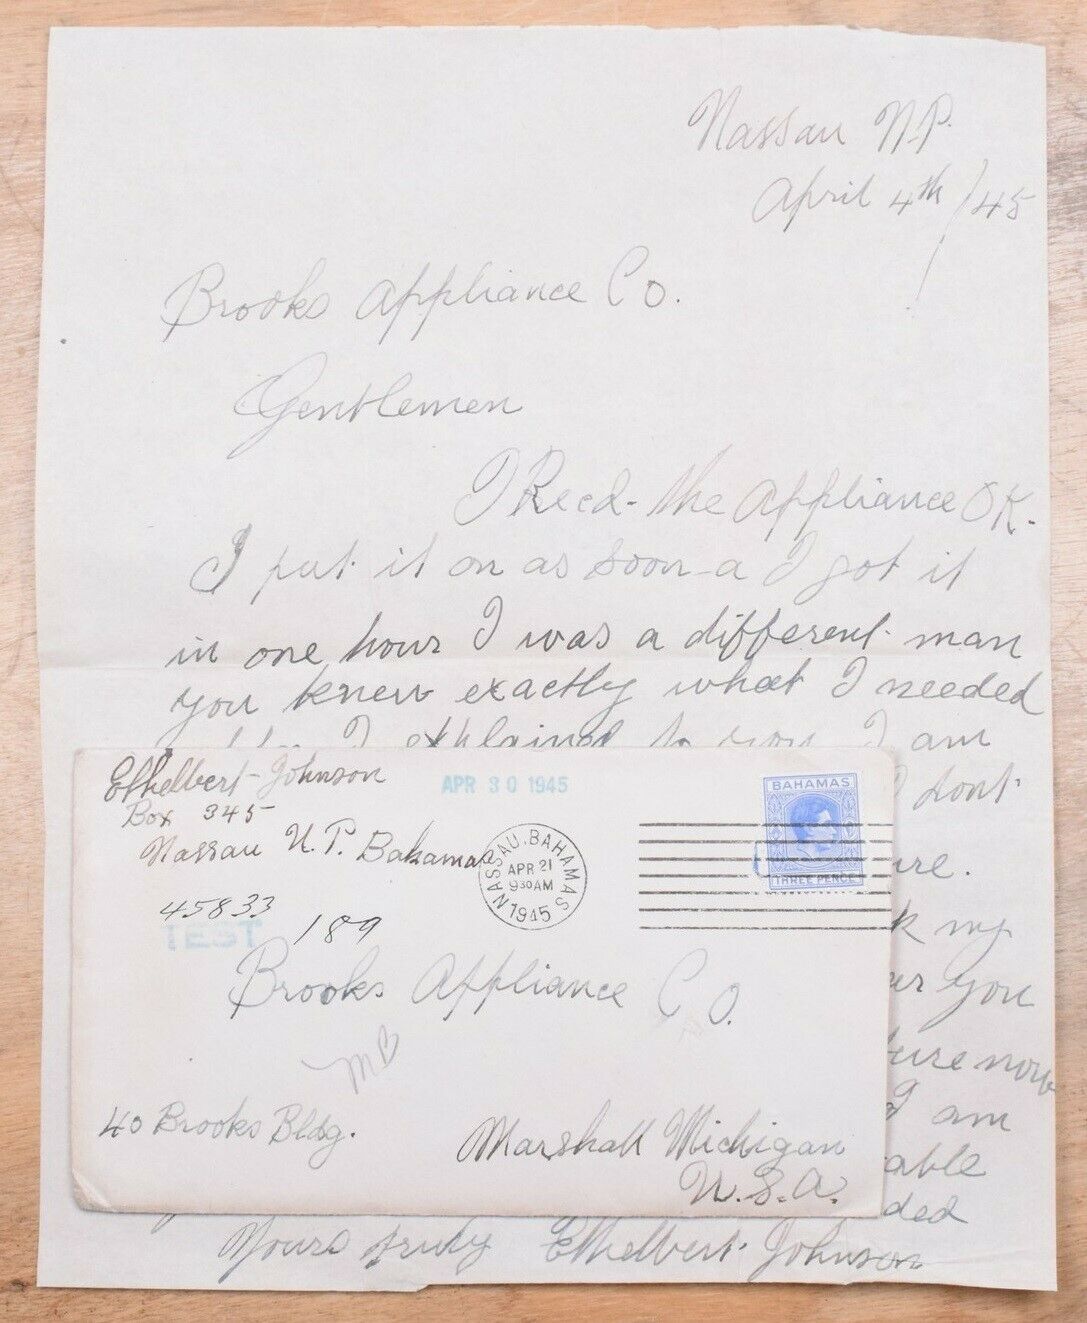 Nassau N.P.
April 4th/45
Brooks Appliance Co.
Gentlemen
I Recd- the Appliance OK.
I put it on as soon a I got it
in one hour I was a different man
you knew exactly what I needed
I explained to you I am
I dont
ure.
k my
er you
ture now
I am
able
ded
Yours truly Ethelbert Johnson
Ethelbert Johnson
Box 345
Nassau N.P. Bahamas
APR 30 1945
NASSAU, BAHAMAS
APR 21
9 30 AM
1945
BAHAMAS
THREE PENCE
45833
TEST
189
Brooks Appliance CO.
MB
40 Brooks Bldg.
Marshall Michigan
U.S.A.